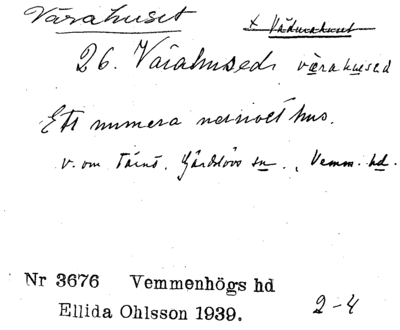 Värahuset x Vädurahuset
26. Värahused. värahused
Ett numera nerrivet hus.
v. om Tärnö. Gärdslövs sn., Vemm. hd.
Nr 3676 Vemmenhögs hd
Ellida Ohlsson 1939. 2-4